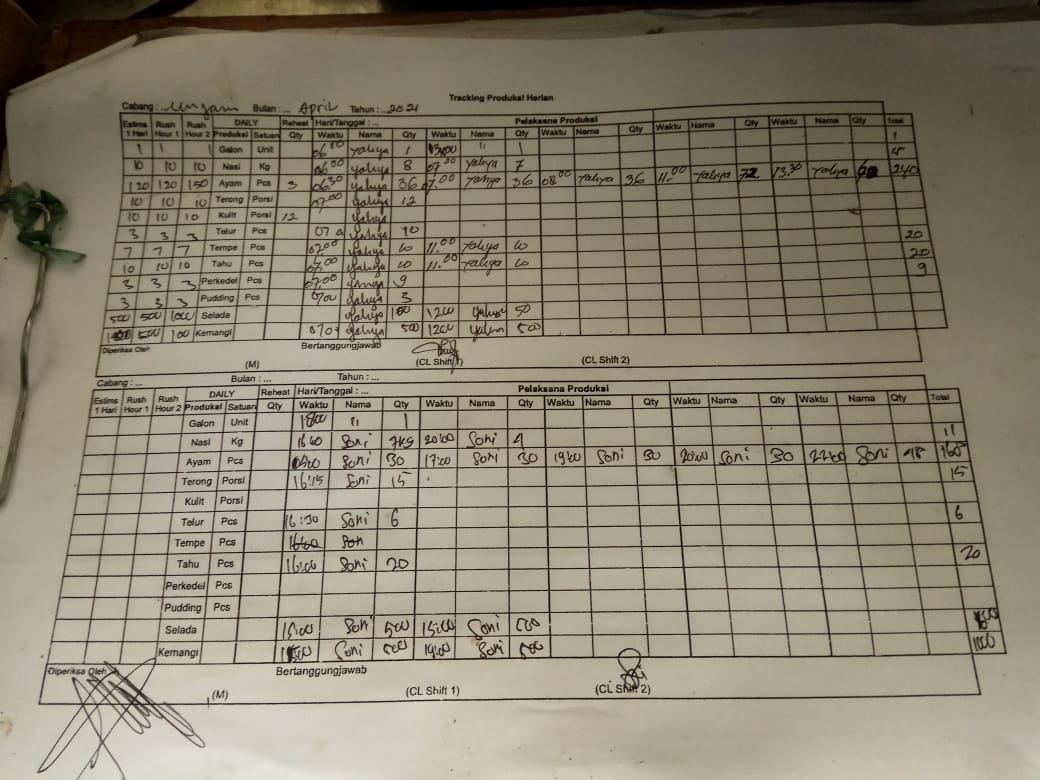 Tracking Produksi Harian
Cabang : Bulan : ... April Tahun : ..2021
Estims 1 Hari Rush Hour 1 Rush Hour 2 DAILY Reheat Hari/Tanggal : ... Pelaksana Produksi Total
Produksi Satuan Qty Waktu Nama Qty Waktu Nama Qty Waktu Nama Qty Waktu Nama Qty Waktu Nama Qty
1 1 1 Galon Unit 06 00 Yahya 1 " 1 1
10 10 10 Nasi Kg 06 00 Yahya 8 07 00 Yahya 7
120 120 150 Ayam Pcs 3 06 30 Yahya 36 07.00 Yahya 36 08 00 Yahya 36 11.00 Yahya 72 13.30 Yahya 240
10 10 10 Terong Porsi 07.00 Yahya 12
10 10 10 Kulit Porsi 12 Yahya
3 3 3 Telur Pcs Yahya 10
7 7 7 Tempe Pcs 07.00 Yahya 10 11.00 Yahya 10 20
10 10 10 Tahu Pcs 07.00 Yahya 10 11.00 Yahya 10 20
3 3 3 Perkedel Pcs 07.00 9 9
3 3 3 Pudding Pcs 0700 Yahya 3
500 500 1000 Selada Yahya 1200 Yahya 50
500 100 Kemangi Yahya 500 1200 500
Diperiksa Oleh Bertanggungjawab
(M) (CL Shift 1) (CL Shift 2)
Cabang : ... Bulan : ... Tahun : ...
Estims 1 Hari Rush Hour 1 Rush Hour 2 DAILY Reheat Hari/Tanggal : ... Pelaksana Produksi Total
Produksi Satuan Qty Waktu Nama Qty Waktu Nama Qty Waktu Nama Qty Waktu Nama Qty Waktu Nama Qty
Galon Unit " 1
Nasi Kg Soni 7KG 20:00 Soni 4 11
Ayam Pcs Soni 30 17:00 Soni 30 19:00 Soni 30 20:00 Soni 30 22:00 Soni 45 165
Terong Porsi 16:15 Soni 15 15
Kulit Porsi
Telur Pcs 16:30 Soni 6 6
Tempe Pcs
Tahu Pcs 16:00 Soni 20 20
Perkedel Pcs
Pudding Pcs
Selada 15:00 Soni 500 15:00 Soni 500
Kemangi Soni 500 19:00 Soni 500 1000
Diperiksa Oleh Bertanggungjawab
(M) (CL Shift 1) (CL Shift 2)